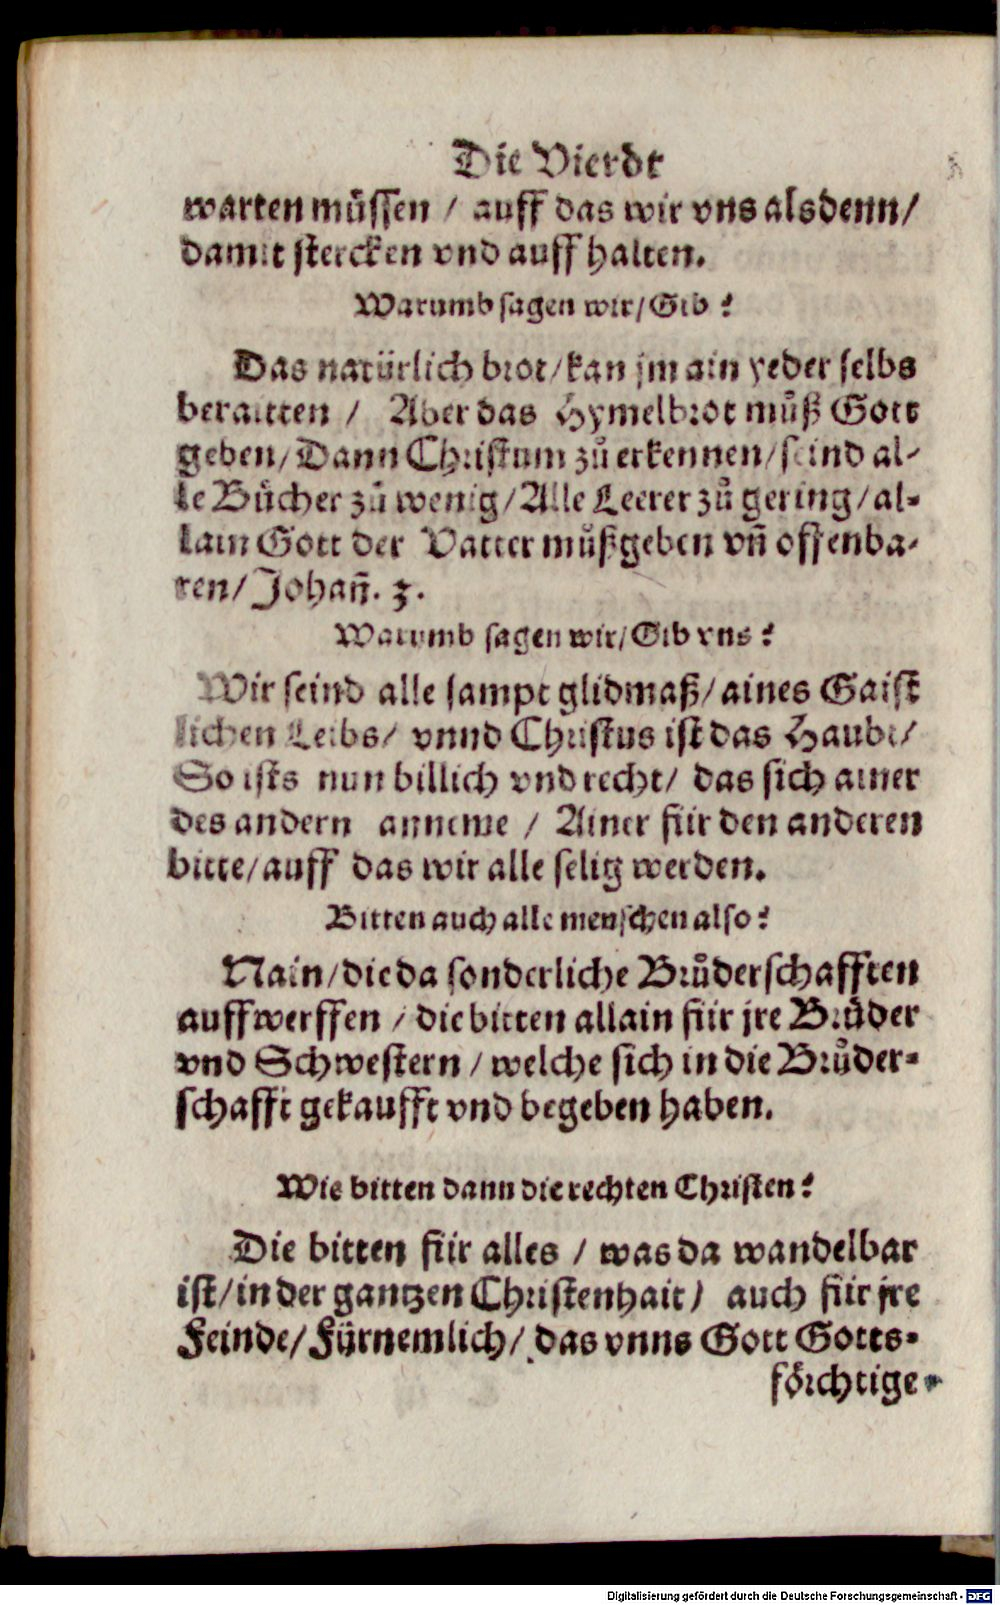 Die Vierdt
warten müssen / auff das wir vns alsdenn/
damit stercken vnd auff halten.
Warumb sagen wir/ Gib ?
Das natürlich brot/kan jm ain yeder selbs
beraitten / Aber das Hymelbrot můß Gott
geben/ Dann Christum zů erkennen/ seind al-
le Bücher zů wenig/ Alle Leerer zů gering/ al-
lain Gott der Vatter můß geben vñ offenba-
ren/ Johañ. 3.
Warumb sagen wir/ Gib vns?
Wir seind alle sampt glidmaß/ aines Gaist
lichen Leibs/ vnnd Christus ist das Haubt/
So ists nun billich vnd recht/ das sich ainer
des andern anneme / Ainer für den anderen
bitte/ auff das wir alle selig werden.
Bitten auch alle menschen also?
Nain/ die da sonderliche Brůderschafften
auffwerffen / die bitten allain für jre Brüder
vnd Schwestern / welche sich in die Brůder-
schafft gekaufft vnd begeben haben.
Wie bitten dann die rechten Christen?
Die bitten für alles / was da wandelbar
ist/ in der gantzen Christenhait/ auch für jre
Feinde/ Fürnemlich/ das vnns Gott Gotts-
förchtige
Digitalisierung gefördert durch die Deutsche Forschungsgemeinschaft - DFG